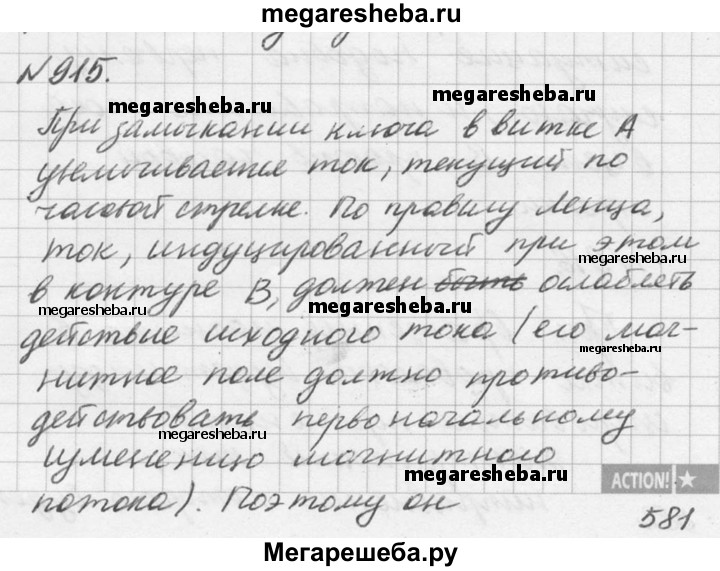 megaresheba.ru
N 915.
megaresheba.ru megaresheba.ru
При замыкании ключа в витке А
увеличивается ток, текущий по
часовой стрелке. По правилу Ленца,
ток, индуцированный при этом
megaresheba.ru megaresheba.ru
в контуре В, должен быть ослаблять
megaresheba.ru
действие исходного тока (его маг-
megaresheba.ru
нитное поле должно противо-
действовать первоначальному
megaresheba.ru
изменению магнитного
megaresheba.ru
потока). Поэтому он
ACTION!
581
Мегарешеба.ру